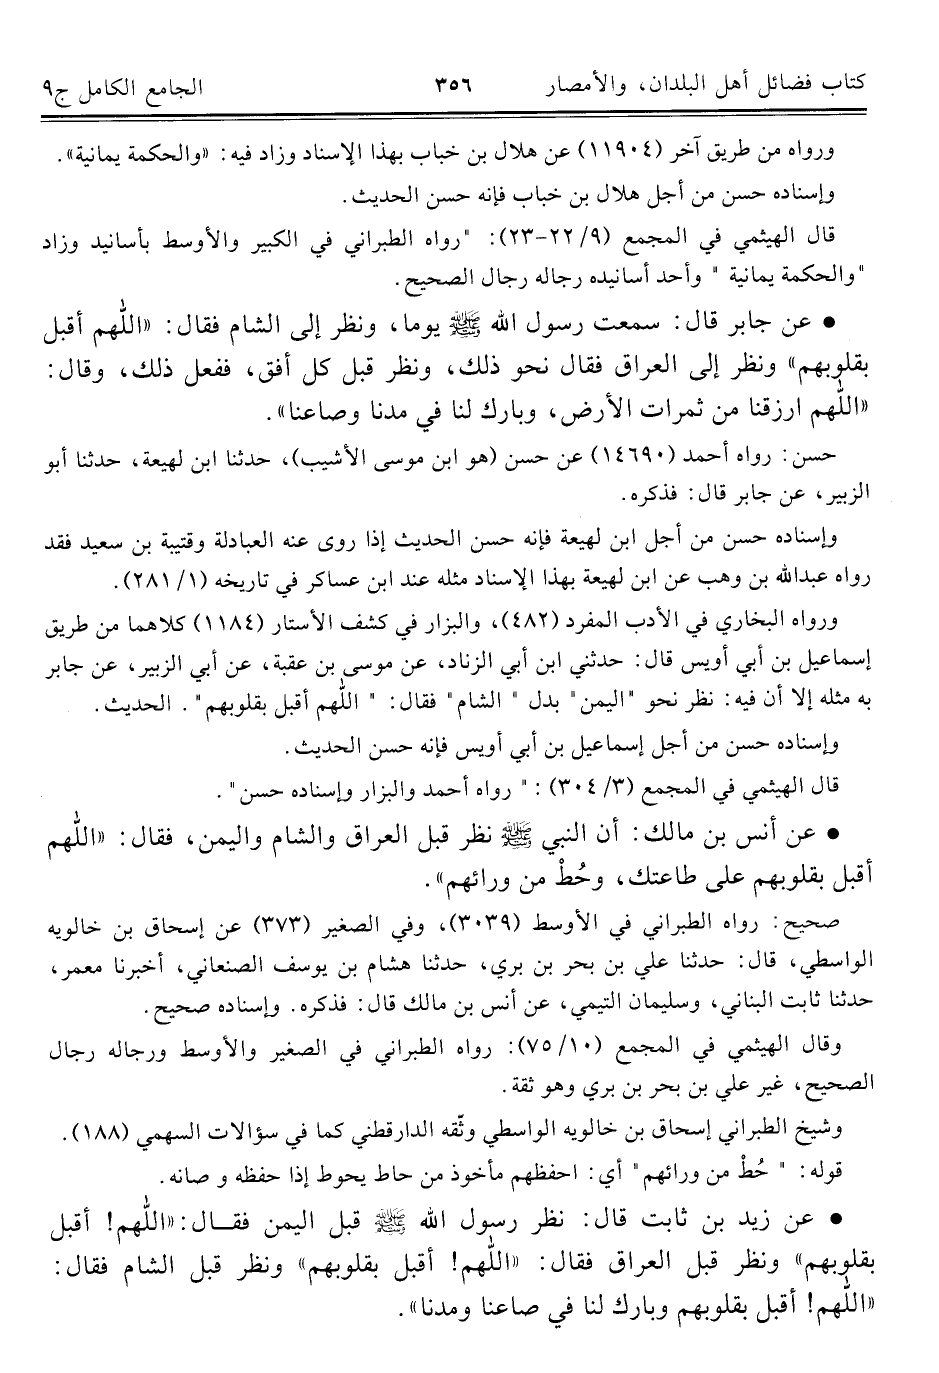 كتاب فضائل أهل البلدان، والأمصار ٣٥٦ الجامع الكامل ج٩
ورواه من طريق آخر (١١٩٠٤) عن هلال بن خباب بهذا الإسناد وزاد فيه: «والحكمة يمانية».
وإسناده حسن من أجل هلال بن خباب فإنه حسن الحديث.
قال الهيثمي في المجمع (٩/ ٢٢-٢٣): "رواه الطبراني في الكبير والأوسط بأسانيد وزاد
"والحكمة يمانية " وأحد أسانيده رجاله رجال الصحيح.
● عن جابر قال: سمعت رسول الله ﷺ يوما، ونظر إلى الشام فقال: «اللّٰهم أقبل
بقلوبهم» ونظر إلى العراق فقال نحو ذلك، ونظر قبل كل أفق، ففعل ذلك، وقال:
«اللّٰهم ارزقنا من ثمرات الأرض، وبارك لنا في مدنا وصاعنا».
حسن: رواه أحمد (١٤٦٩٠) عن حسن (هو ابن موسى الأشيب)، حدثنا ابن لهيعة، حدثنا أبو
الزبير، عن جابر قال: فذكره.
وإسناده حسن من أجل ابن لهيعة فإنه حسن الحديث إذا روى عنه العبادلة وقتيبة بن سعيد فقد
رواه عبدالله بن وهب عن ابن لهيعة بهذا الإسناد مثله عند ابن عساكر في تاريخه (١/ ٢٨١).
ورواه البخاري في الأدب المفرد (٤٨٢)، والبزار في كشف الأستار (١١٨٤) كلاهما من طريق
إسماعيل بن أبي أويس قال: حدثني ابن أبي الزناد، عن موسى بن عقبة، عن أبي الزبير، عن جابر
به مثله إلا أن فيه: نظر نحو "اليمن" بدل " الشام" فقال: " اللّٰهم أقبل بقلوبهم". الحديث.
وإسناده حسن من أجل إسماعيل بن أبي أويس فإنه حسن الحديث.
قال الهيثمي في المجمع (٣/ ٣٠٤) : " رواه أحمد والبزار وإسناده حسن".
● عن أنس بن مالك: أن النبي ﷺ نظر قبل العراق والشام واليمن، فقال: «اللّٰهم
أقبل بقلوبهم على طاعتك، وحُطْ من ورائهم».
صحيح: رواه الطبراني في الأوسط (٣٠٣٩)، وفي الصغير (٣٧٣) عن إسحاق بن خالويه
الواسطي، قال: حدثنا علي بن بحر بن بري، حدثنا هشام بن يوسف الصنعاني، أخبرنا معمر،
حدثنا ثابت البناني، وسليمان التيمي، عن أنس بن مالك قال: فذكره. وإسناده صحيح.
وقال الهيثمي في المجمع (١٠/ ٧٥): رواه الطبراني في الصغير والأوسط ورجاله رجال
الصحيح، غير علي بن بحر بن بري وهو ثقة.
وشيخ الطبراني إسحاق بن خالويه الواسطي وثّقه الدارقطني كما في سؤالات السهمي (١٨٨).
قوله: " حُطْ من ورائهم" أي: احفظهم مأخوذ من حاط يحوط إذا حفظه و صانه.
● عن زيد بن ثابت قال: نظر رسول الله ﷺ قبل اليمن فقـال:«اللّٰهم! أقبل
بقلوبهم» ونظر قبل العراق فقال: «اللّٰهم! أقبل بقلوبهم» ونظر قبل الشام فقال:
«اللّٰهم! أقبل بقلوبهم وبارك لنا في صاعنا ومدنا».